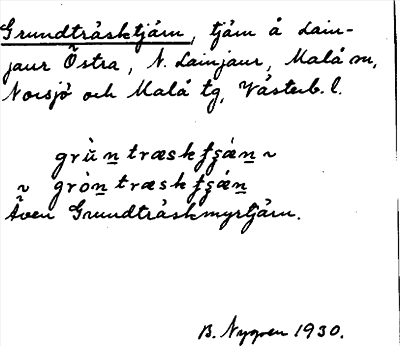 Grundträsktjärn, tjärn å Lain-
jaur Östra, N. Lainjaur, Malå sn,
Norsjö och Malå tg, Västerb. l.
grùn træsk ʃʒæn ~
~ gròn træsk ʃʒæn
Även Grundträskmyrtjärn.
B. Nygren 1930.